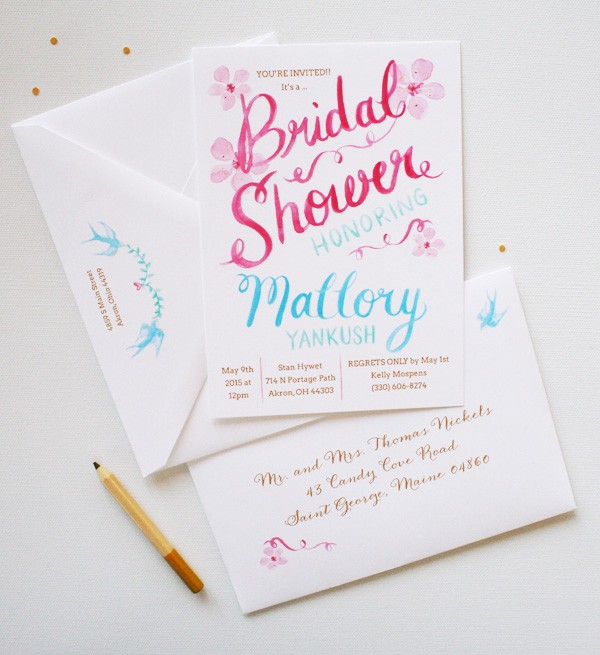 YOU'RE INVITED!!
It's a ...
Bridal
Shower
HONORING
Mallory
YANKUSH
May 9th
2015 at
12pm
Stan Hywet
714 N Portage Path
Akron, OH 44303
REGRETS ONLY by May 1st
Kelly Mospens
(330) 606-8274
4859 S Main Street
Akron, Ohio 44319
Mr. and Mrs. Thomas Nickets
43 Candy Cove Road
Saint George, Maine 04860